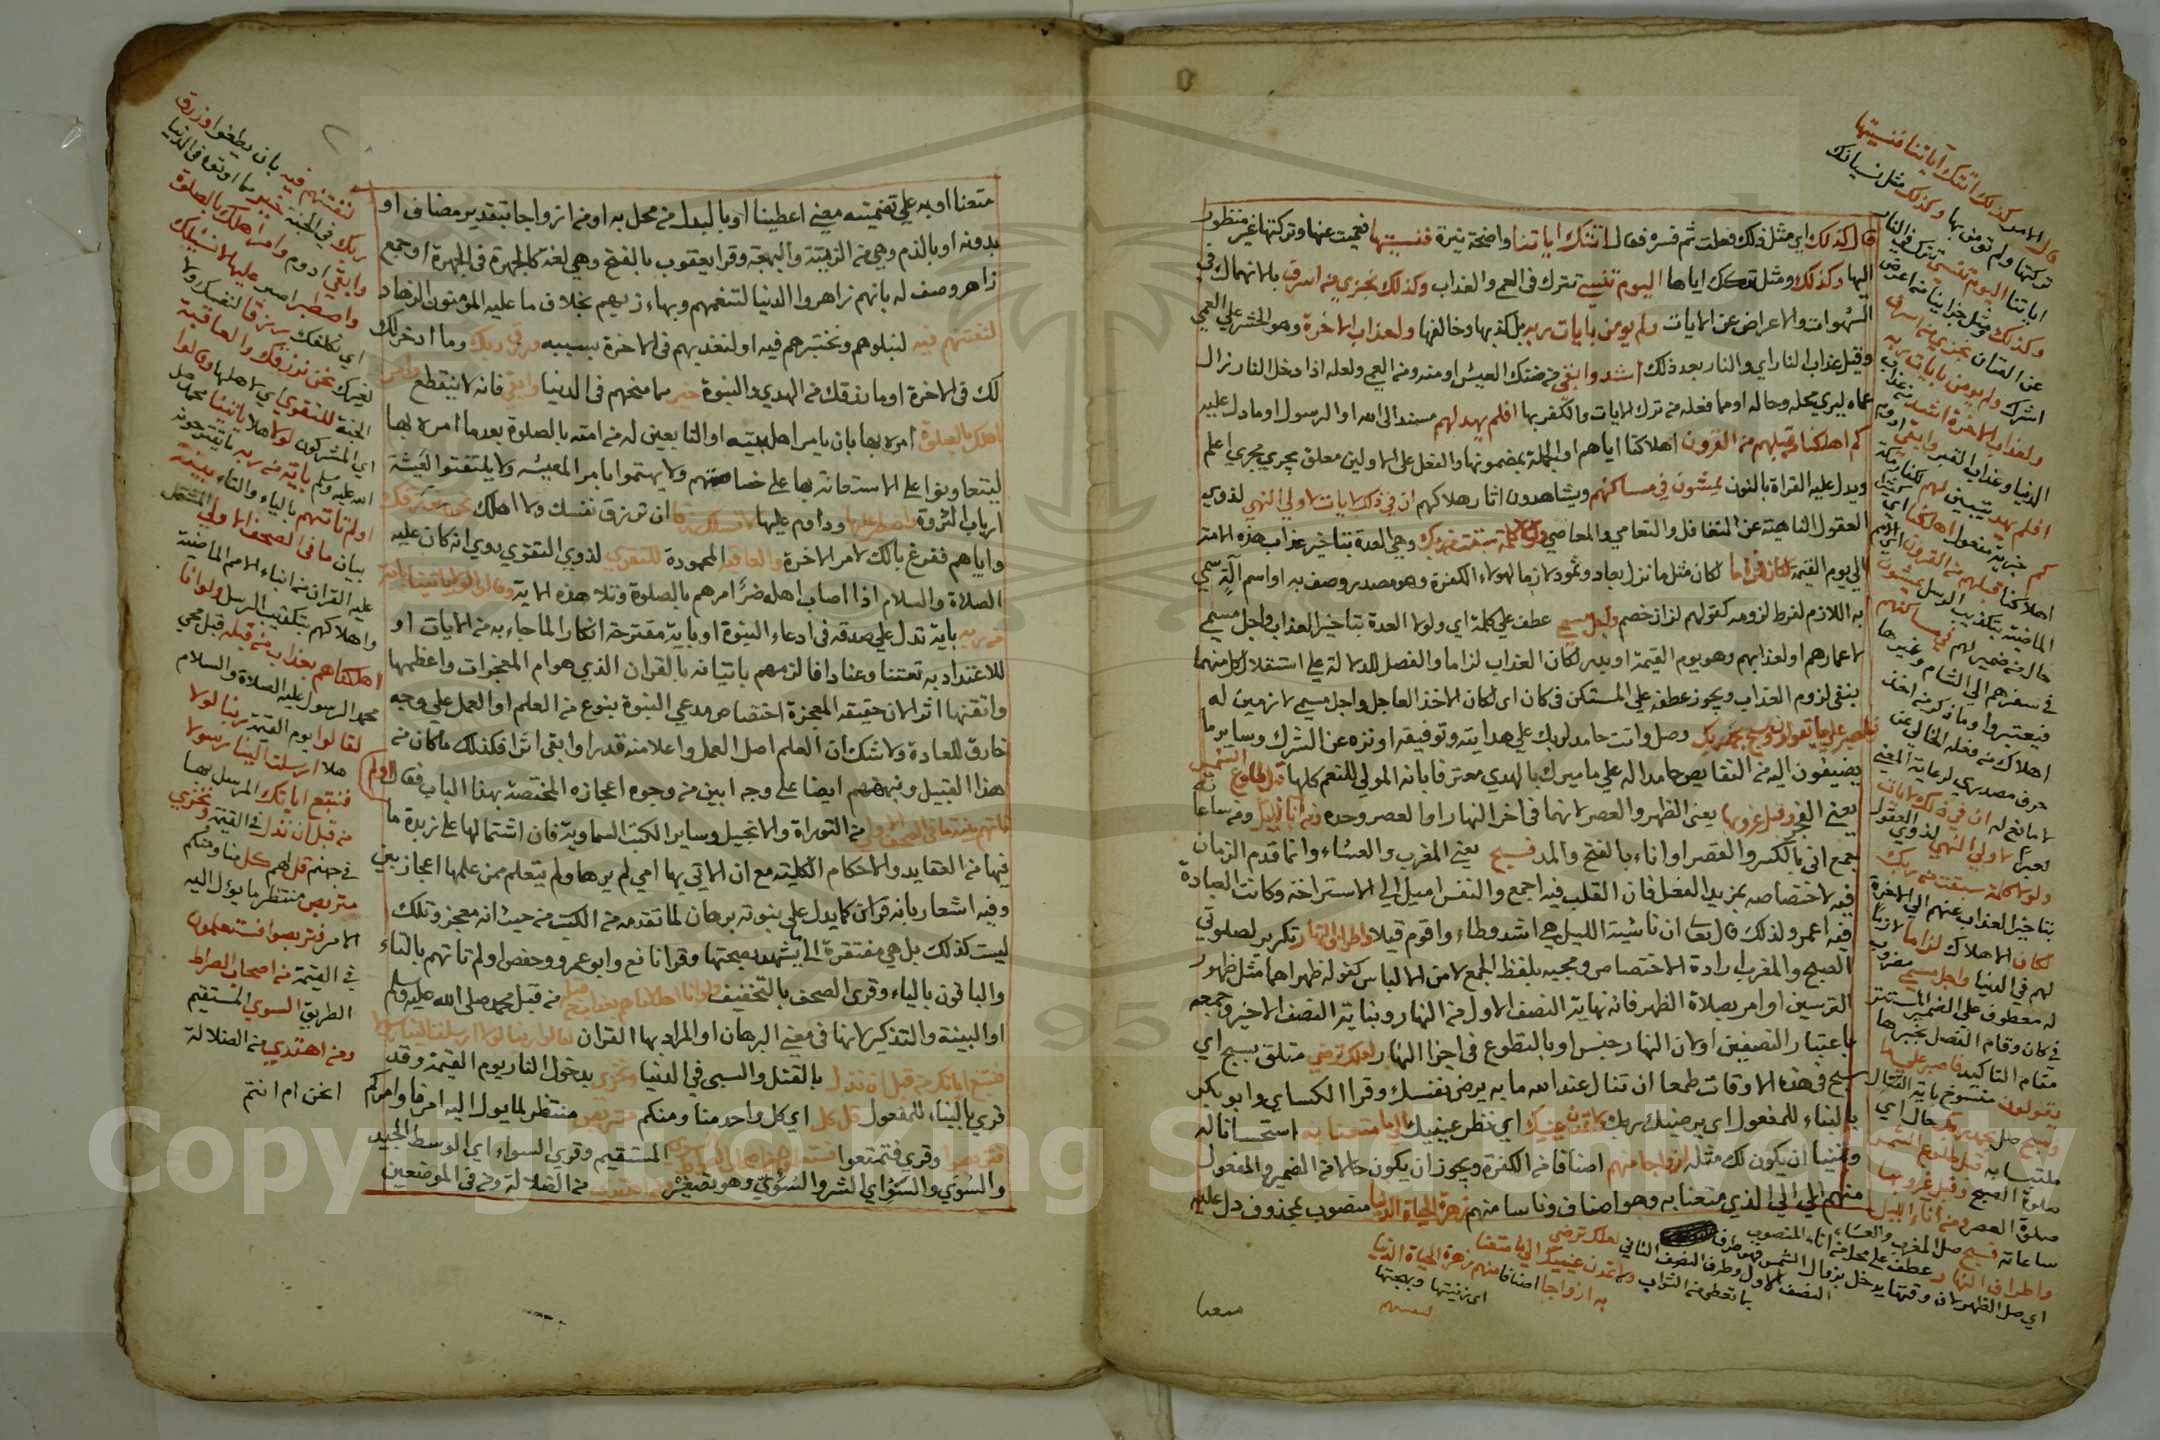 قال كذلك اي مثل ذلك فعلت ثم فسره فقال اتتك اياتنا واضحة نيرة فنسيتها فعميت عنها وتركتها غير منظور
اليها وكذلك ومثل تركك اياها اليوم تنسى تترك في العمى والعذاب وكذلك نجزي من اسرف بالانهماك في
الشهوات والاعراض عن الايات ولم يومن بايات ربه بل كذبها وخالفها ولعذاب الاخرة وهو الحشر على العمى
وقيل عذاب النار اي والنار بعد ذلك اشد وابقى من ضنك العيش او منه ومن العمى ولعله اذا دخل النار زال
عماه ليرى محله وحاله او مما فعله من ترك الايات والكفر بها افلم يهد لهم مسند الى الله او الرسول او ما دل عليه
كم اهلكنا قبلهم من القرون اهلاكنا اياهم او الجملة بمضمونها والفعل على الاولين معلق يجري مجري اعلم
ويدل عليه القراة بالنون يمشون في مساكنهم ويشاهدون اثار هلاكهم ان في ذلك لايات لاولي النهى لذوي
العقول الناهية عن التغافل والتعامي والمعاصي ولولا كلمة سبقت من ربك وهي العدة بتاخير عذاب هذه الامة
الي يوم القيمة لكان لزاما لكان مثل ما نزل بعاد وثمود لازما لهولاء الكفرة وهو مصدر وصف به او اسم آلة سمي
به اللازم لفرط لزومه كقولهم لزاز خصم واجل مسمى عطف على كلمة اي ولولا العدة بتاخير العذاب واجل مسمى
لاعمارهم او لعذابهم وهو يوم القيمة او بدر لكان العذاب لزاما والفصل للدلالة على استقلال كل منهما
بنفي لزوم العذاب ويجوز عطفه على المستكن في كان اى لكان الاخذ العاجل واجل مسمى لازمين له
فاصبر على ما يقولون وسبح بحمد ربك وصل وانت حامد لربك على هدايته وتوفيقه او نزه عن الشرك وساير ما
يضيفون اليه من النقايص حامدا له على ما ميرك بالهدي معترفا بانه المولي للنعم كلها قبل طلوع الشمس
يعني الفجر وقبل غروبها يعنى الظهر والعصر لانهما في اخر النهار او العصر وحده ومن آناء الليل ومن ساعاته
جمع انى بالكسر والقصر او اناء بالفتح والمد فسبح يعني المغرب والعشاء وانما قدم الزمان
فيه لاختصاصه بمزيد الفضل فان القلب فيه اجمع والنفس اميل الى الاستراحة وكانت العبادة
فيه احمز ولذلك قال تعالى ان ناشية الليل هي اشد وطاء واقوم قيلا واطراف النهار تكرير لصلوتي
الصبح والمغرب ارادة الاختصاص ومجيه بلفظ الجمع لامن الالباس كقوله ظهراهما مثل ظهور
الترسين او امر بصلاة الظهر فانه نهاية النصف الاول من النهار وبداية النصف الاخير وجمعه
باعتبار النصفين اولان النهار جنس او بالتطوع في اجزا النهار لعلك ترضي متعلق بسبح اي
سبح في هذه الاوقات طمعا ان تنال عند الله ما به يرضي نفسك وقرا الكساي وابو بكر
بالبناء للمفعول اي يرضيك ربك ولا تمدن عينيك اي نظر عينيك الى ما متعنا به استحسانا له
وتمنيا ان يكون لك مثله ازواجا منهم اصنافا من الكفرة ويجوز ان يكون حالا من الضمير والمفعول
منهم اي الى الذي متعنا به وهو اصناف وناسا منهم زهرة الحياة الدنيا منصوب بمحذوف دل عليه
متعنا
قال الامر كذلك اتتك آياتنا فنسيتها
تركتها ولم تومن بها وكذلك مثل نسيانك
اياتنا اليوم تنسى تترك في النار
وكذلك ومثل جزاينا من اعرض
عن القران نجزي من اسرف
اشرك ولم يومن بايات ربه
ولعذاب الاخرة اشد من عذاب
الدنيا وعذاب القبر وابقى ادوم
افلم يهد يتبين لهم لكفار مكة
كم خبرية مفعول اهلكنا اي كثيرا
اهلاكنا قبلهم من القرون اي الامم
الماضية بتكذيب الرسل يمشون
حال من ضمير لهم في مساكنهم
في سفرهم الى الشام وغيرها
فيعتبروا وما ذكر من اخذ
اهلاك من فعله الخالي عن
حرف مصدري لرعاية المعنى
لا مانع له ان في ذلك لايات
لعبرا لاولي النهى لذوي العقول
ولولا كلمة سبقت من ربك
بتاخير العذاب عنهم الى الاخرة
لكان الاهلاك لزاما لازما
لهم في الدنيا واجل مسمى مضروب
له معطوف على الضمير المستتر
في كان وقام الفصل بخبرها
مقام التاكيد فاصبر على ما
يقولون منسوخ باية القتال
وسبح صل بحمد ربك حال اي
ملتبسا به قبل طلوع الشمس
صلوة الصبح وقبل غروبها
صلوة العصر ومن آناء الليل
ساعاته فسبح صل المغرب والعشاء
واطراف النهار عطف على محل من اناء المنصوب
اي صل الظهر لان وقتها يدخل بزوال الشمس فهو طرف
النصف الاول وطرف النصف الثاني لعلك ترضى
بما تعطى من الثواب ولا تمدن عينيك الى ما متعنا
به ازواجا اصنافا منهم زهرة الحياة الدنيا
اى زينتها وبهجتها
متعنا او به على تضمينه معنى اعطينا او بالبدل من محل به او من ازواجا بتقدير مضاف او
بدونه او بالذم وهي من الزينة والبهجة وقرا يعقوب بالفتح وهي لغة كالجهرة في الجهرة او جمع
زاهر وصف له بانهم زاهروا الدنيا لتنعمهم وبهاء زيهم بخلاف ما عليه المومنون الزهاد
لنفتنهم فيه لنبلوهم ونختبرهم فيه او لنعذبهم في الاخرة بسببه ورزق ربك وما ادخر لك
لك في الاخرة او ما رزقك من الهدي والنبوة خير مما منحهم في الدنيا وابقى فانه لا ينقطع وامر
اهلك بالصلوة امره بها بان يامر اهل بيته او التابعين له من امته بالصلوة بعد ما امره بها
ليتعاونوا على الاستعانة بها على خصاصتهم ولا يهتموا بامر المعيشة ولا يلتفتوا لفت
ارباب الثروة واصطبر عليها وداوم عليها لا نسئلك رزقا ان ترزق نفسك ولا اهلك نحن نرزقك
واياهم ففرغ بالك لامر الاخرة والعاقبة المحمودة للتقوي لذوي التقوي روي انه كان عليه
الصلاة والسلام اذا اصاب اهله ضر امرهم بالصلوة وتلا هذه الاية وقالوا لولا ياتينا باية
من ربه باية تدل على صدقه في ادعاء النبوة او باية مقترحة انكارا لما جاء به من الايات او
للاعتداد به تعنتا وعنادا فالزمهم باتيانه بالقران الذي هو ام المعجزات واعظمها
واتقنها اثرا لان حقيقة المعجزة اختصاص مدعي النبوة بنوع من العلم او العمل على وجه
خارق للعادة ولا شك ان العلم اصل العمل واعلا منه قدرا وابقى اثرا فكذلك ما كان من
هذا القبيل ونبههم ايضا على وجه ابين من وجوه اعجازه المختصة بهذا الباب فقال اولم
تاتهم بينة ما في الصحف الاولى من التوراة والانجيل وساير الكتب السماوية فان اشتمالها على زبدة ما
فيها من العقايد والاحكام الكلية مع ان الاتي بها امي لم يرها ولم يتعلم ممن علمها اعجاز بين
وفيه اشعار بانه قران كما يدل على نبوته برهان لما تقدمه من الكتب من حيث انه معجز وتلك
ليست كذلك بل هي مفتقرة الى ما يشهد بصحتها وقرا نافع وابو عمرو وحفص اولم تاتهم بالتاء
والباقون بالياء وقرى الصحف بالتخفيف ولو انا اهلكناهم بعذاب من قبله من قبل محمد صلى الله عليه وسلم
او البينة والتذكير لانها في معنى البرهان او المراد بها القران لقالوا ربنا لولا ارسلت الينا رسولا
فنتبع اياتك من قبل ان نذل بالقتل والسبي في الدنيا ونخزي بدخول النار يوم القيمة وقد
قري بالبناء للمفعول قل كل اي كل واحد منا ومنكم متربص منتظر لما يول اليه امرنا وامركم
فتربصوا وقري فتمتعوا فستعلمون من اصحاب الصراط السوي المستقيم وقري السواء اي الوسط الجيد
والسوى والسؤاي الشر والسؤي وهو تصغيره ومن اهتدي من الضلالة ومن في الموضعين
لنفتنهم فيه بان يطغوا ورزق
ربك في الجنة خير مما اوتوه في الدنيا
وابقى ادوم وامر اهلك بالصلوة
واصطبر اصبر عليها لا نسئلك
اي نكلفك رزقا لنفسك ولا
لغيرك نحن نرزقك والعاقبة
الجنة للتقوى اي لاهلها وقالوا
اي المشركون لولا هلا ياتينا محمد صلى
الله عليه وسلم باية من ربه مما يقترحونه
اولم تاتهم بالياء والتاء بينة
بيان ما في الصحف الاولى المشتمل
عليه القران من انباء الامم الماضية
واهلاكهم بتكذيب الرسل ولو انا
اهلكناهم بعذاب من قبله قبل مجي
محمد الرسول عليه الصلاة والسلام
لقالوا يوم القيمة ربنا لولا
هلا ارسلت الينا رسولا
فنتبع اياتك المرسل بها
من قبل ان نذل في القيمة ونخزي
في جهنم قل لهم كل منا ومنكم
متربص منتظر ما يؤل اليه
الامر فتربصوا فستعلمون
في القيمة من اصحاب الصراط
الطريق السوي المستقيم
ومن اهتدي من الضلالة
انحن ام انتم
Copyright © King Saud University